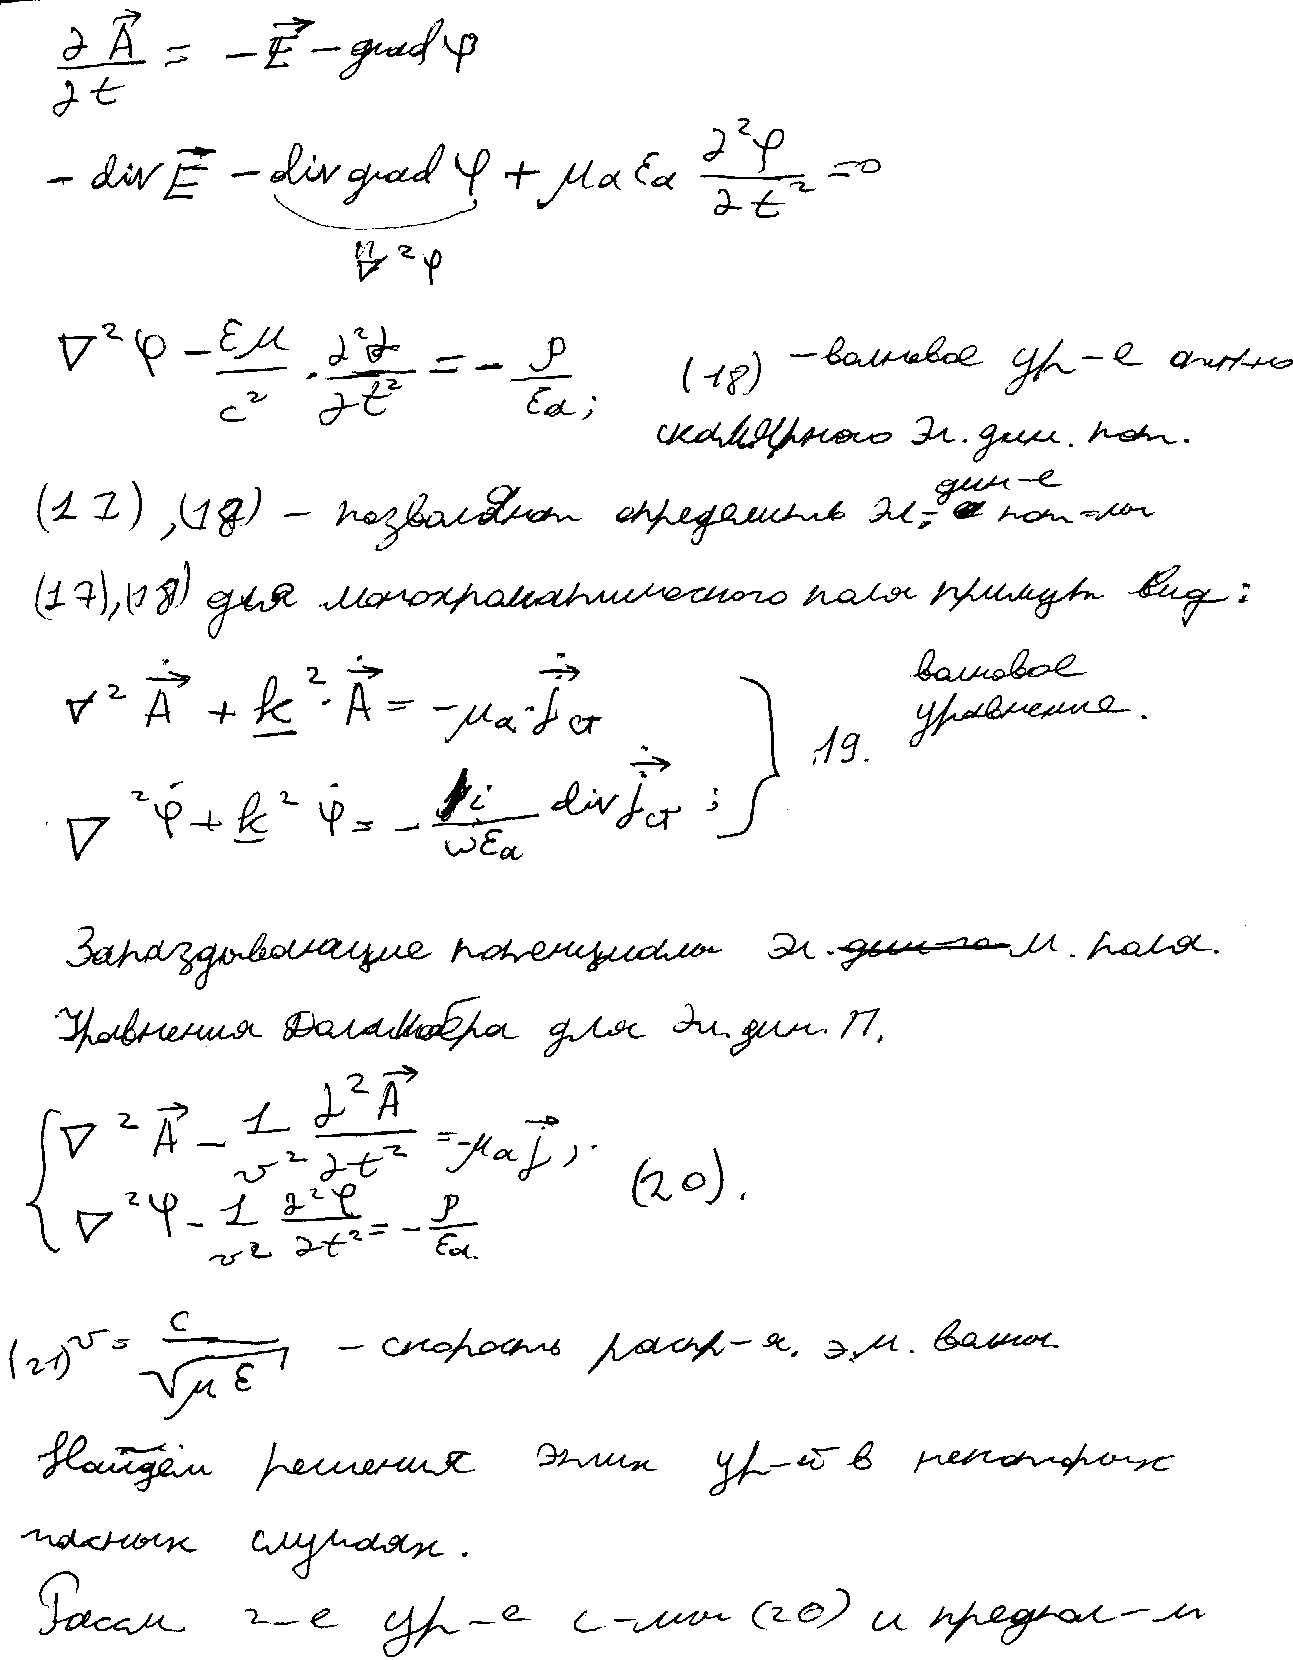 ∂A⃗/∂t = -E⃗ - grad φ
- div E⃗ - div grad φ + μa εa ∂²φ/∂t² = 0
∇²φ
∇²φ - εμ/c² · ∂²∂/∂t² = - ρ/εa; (18) - волновое ур-е относ
скалярного эл. дин. пот.
(17), (18) - позволяют определить эл. дин-е пот-лы
(17), (18) для монохроматического поля примут вид:
∇²A⃗̇ + k² · A⃗̇ = -μa · j⃗̇ ст
волновое уравнение.
} 19.
∇²φ̇ + k² φ̇ = - i/ωεa div j⃗̇ ст;
Запаздывающие потенциалы эл. м. поля.
Уравнения Даламбера для эл. дин. П.
{ ∇²A⃗ - 1/v² ∂²A⃗/∂t² = -μa j⃗,
∇²φ - 1/v² ∂²φ/∂t² = - ρ/εa (20).
(21) v = c/√με - скорость распр-я. э.м. волны.
Найдём решения этих ур-й в некоторых
частных случаях.
Рассм 2-е ур-е с-мы (20) и предпол-м